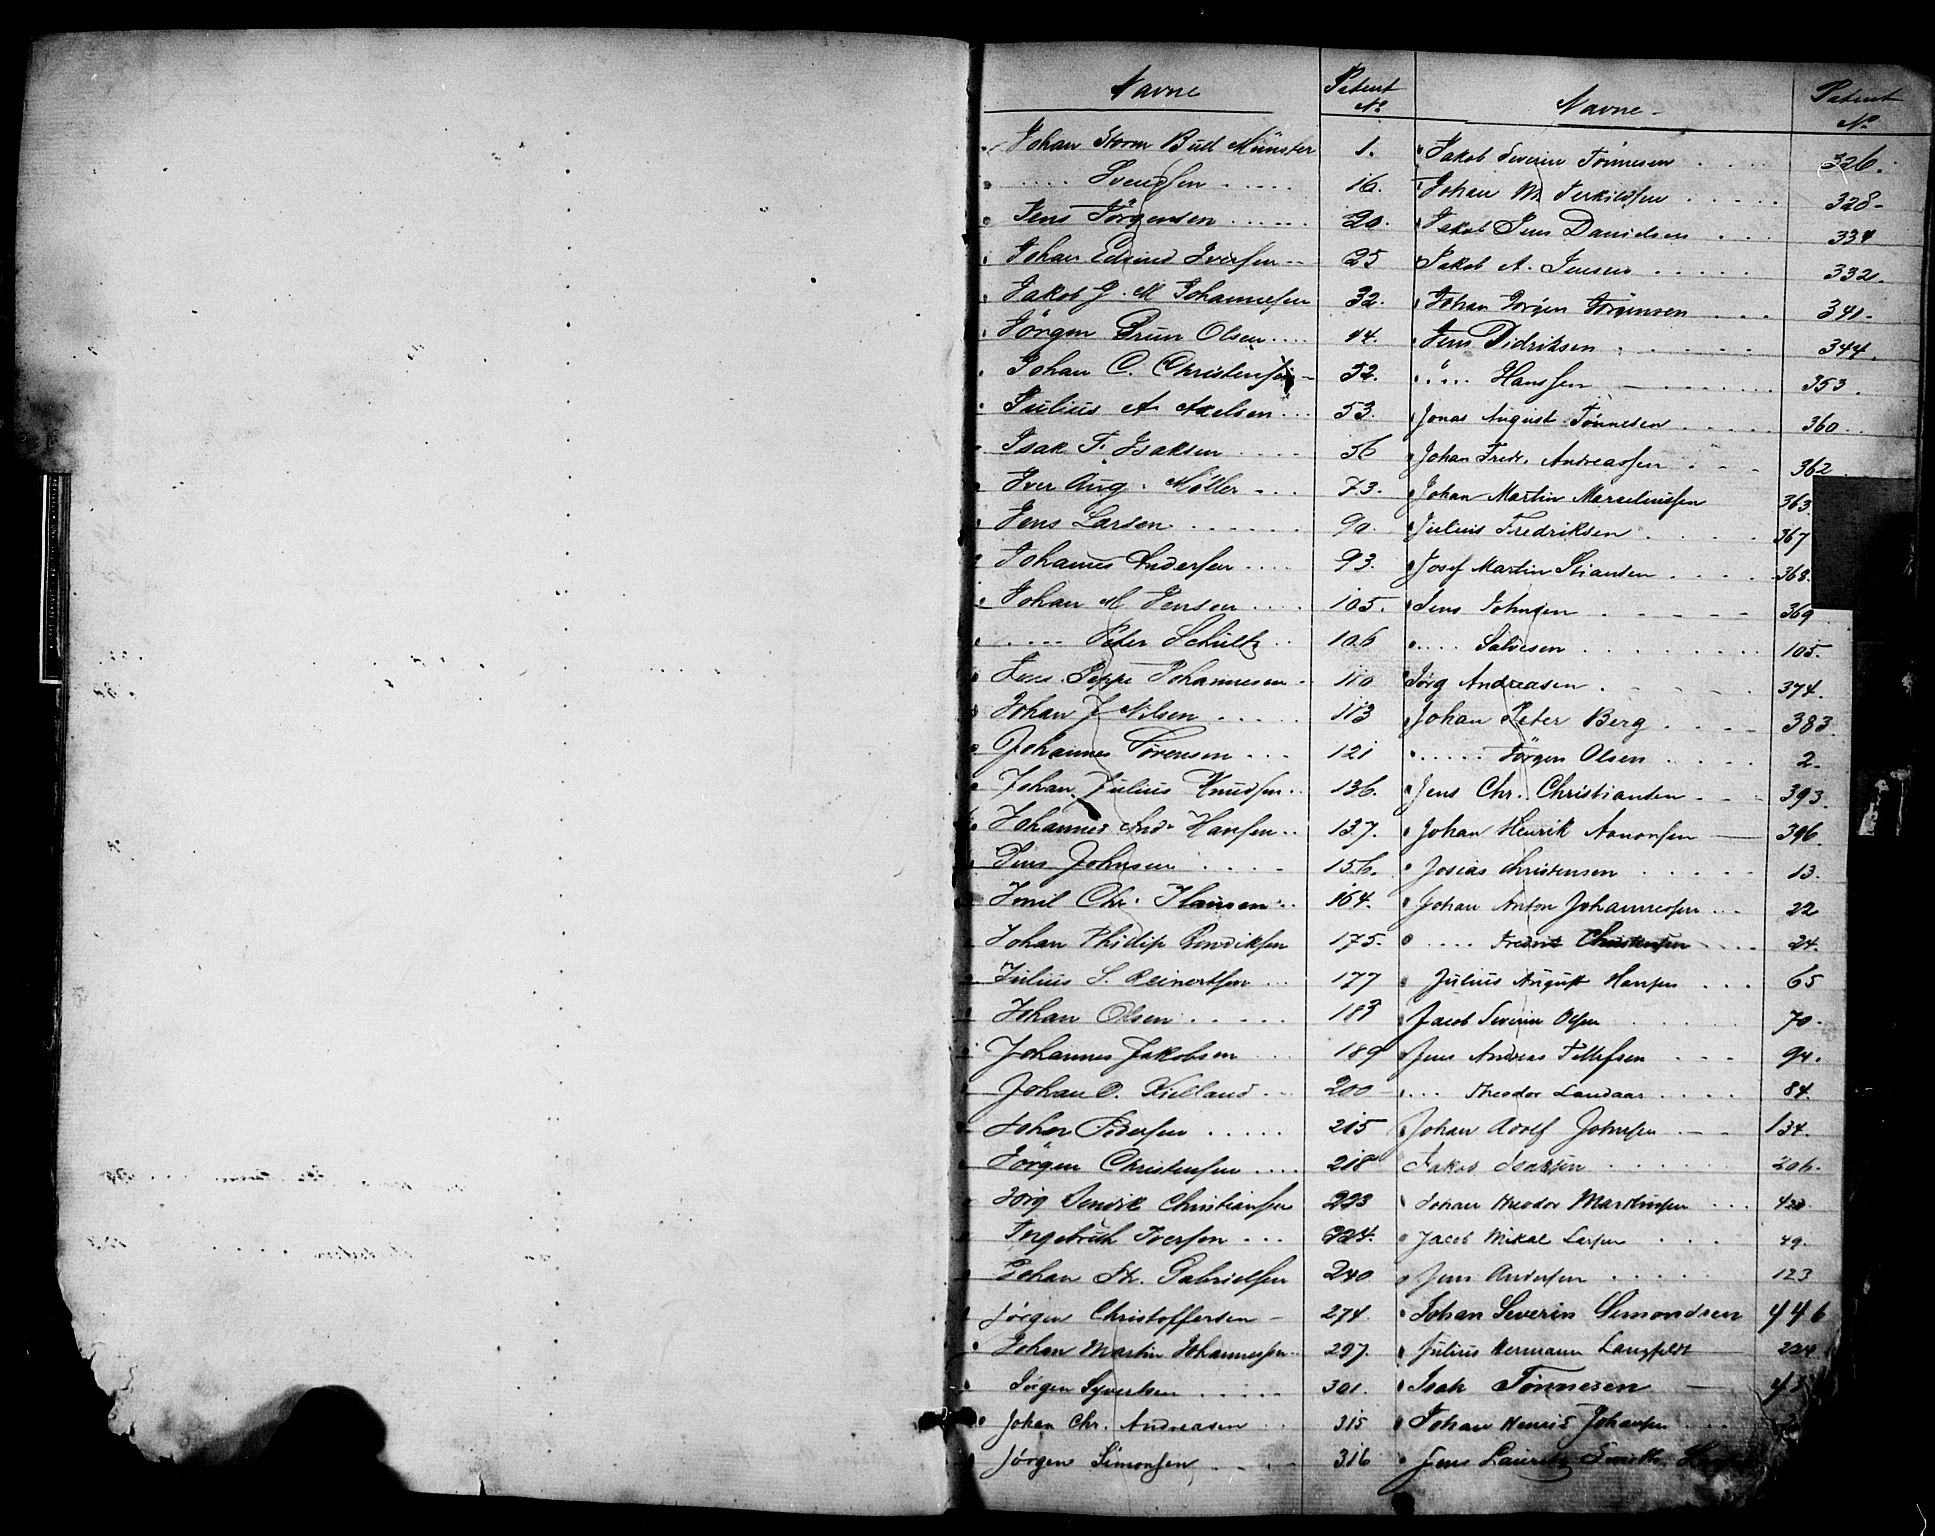 Navne
Patent No
Johan Storm Bull Münster 1.
..... Svendsen ..... 16.
Jens Jörgensen ...... 20.
Johan Edvind Iversen .. 25
Jakob G. M. Johannesen 32.
Jörgen Brun Olsen .... 44.
Johan C. Christensen 52.
Julius A Axelsen ... 53.
Isak T. Isaksen .... 56
Iver Aug. Møller ... 73.
Jens Larsen ...... 90.
Johannes Andersen .... 93.
Johan M Jensen .... 105.
..... Peter Schultz .. 106
Jens Peppe Johannesen . 110
Johan J Nilsen ..... 113
Johannes Sørensen ... 121
Johan Julius Knudsen .. 136.
Johannes And. Hansen .. 137.
Jens Johnsen ..... 156.
Emil Chr. Hansen ... 164.
Johan Philip Bendiksen 175.
Julius S. Reinertsen ... 177
Johan Olsen ..... 183
Johannes Jakobsen ... 189
Johan O. Kielland ... 200
Johan Pedersen ..... 215
Jörgen Christensen .... 218
Jörg Henrik Christiansen 223
Ingebreth Iversen ... 224.
Johan Fr. Gabrielsen 240
Jörgen Christoffersen - 274.
Johan Martin Johannessen .. 297.
Jörgen Syvertsen ..... 301.
Johan Chr. Andreasen .. 315
Jörgen Simonsen ... 316
Navne
Patent No
Jakob Severin Tønnesen .... 326.
Johan M. Terkildsen ..... 328-
Jakob Jens Danielsen ... 334
Jakob A. Jensen ..... 332.
Johan Jörgen Jörgensen ... 341.
Jens Didriksen ...... 344.
..... Hanssen 353.
Jonas August Tønnesen ..... 360.
Johan Fredr. Andreassen ... 362
Johan Martin Marceliussen 363
Julius Fredriksen .... 367
Josef Martin Stiansen .... 368.
Jens Johnsen ..... 369
..... Salvesen ......... 105.
Jörg Andreasen ..... 374.
Johan Peter Berg .... 383.
...... Jörgen Olsen ..... 2.
Jens Chr. Christiansen ... 393.
Johan Henrik Aanonsen 396.
Josias Christensen ..... 13.
Johan Anton Johannessen ... 22
..... Fredrik Christensen 24.
Julius August Hansen ... 65
Jacob Severin Olsen ..... 70.
Jens Andreas Tellefsen ... 94.
... Theodor Landaas .... 84.
Johan Adolf Johnsen .. 134.
Jakob Isaksen ..... 206.
Johan Theodor Martinsen ... 423.
Jacob Mikal Larsen .... 49.
Jens Andersen ..... 123
Johan Severin Simondsen 446
Julius Hermann Langfeldt 224
Isak Tønnesen
Johan Henrik Johansen
Jens Lauritz Smith